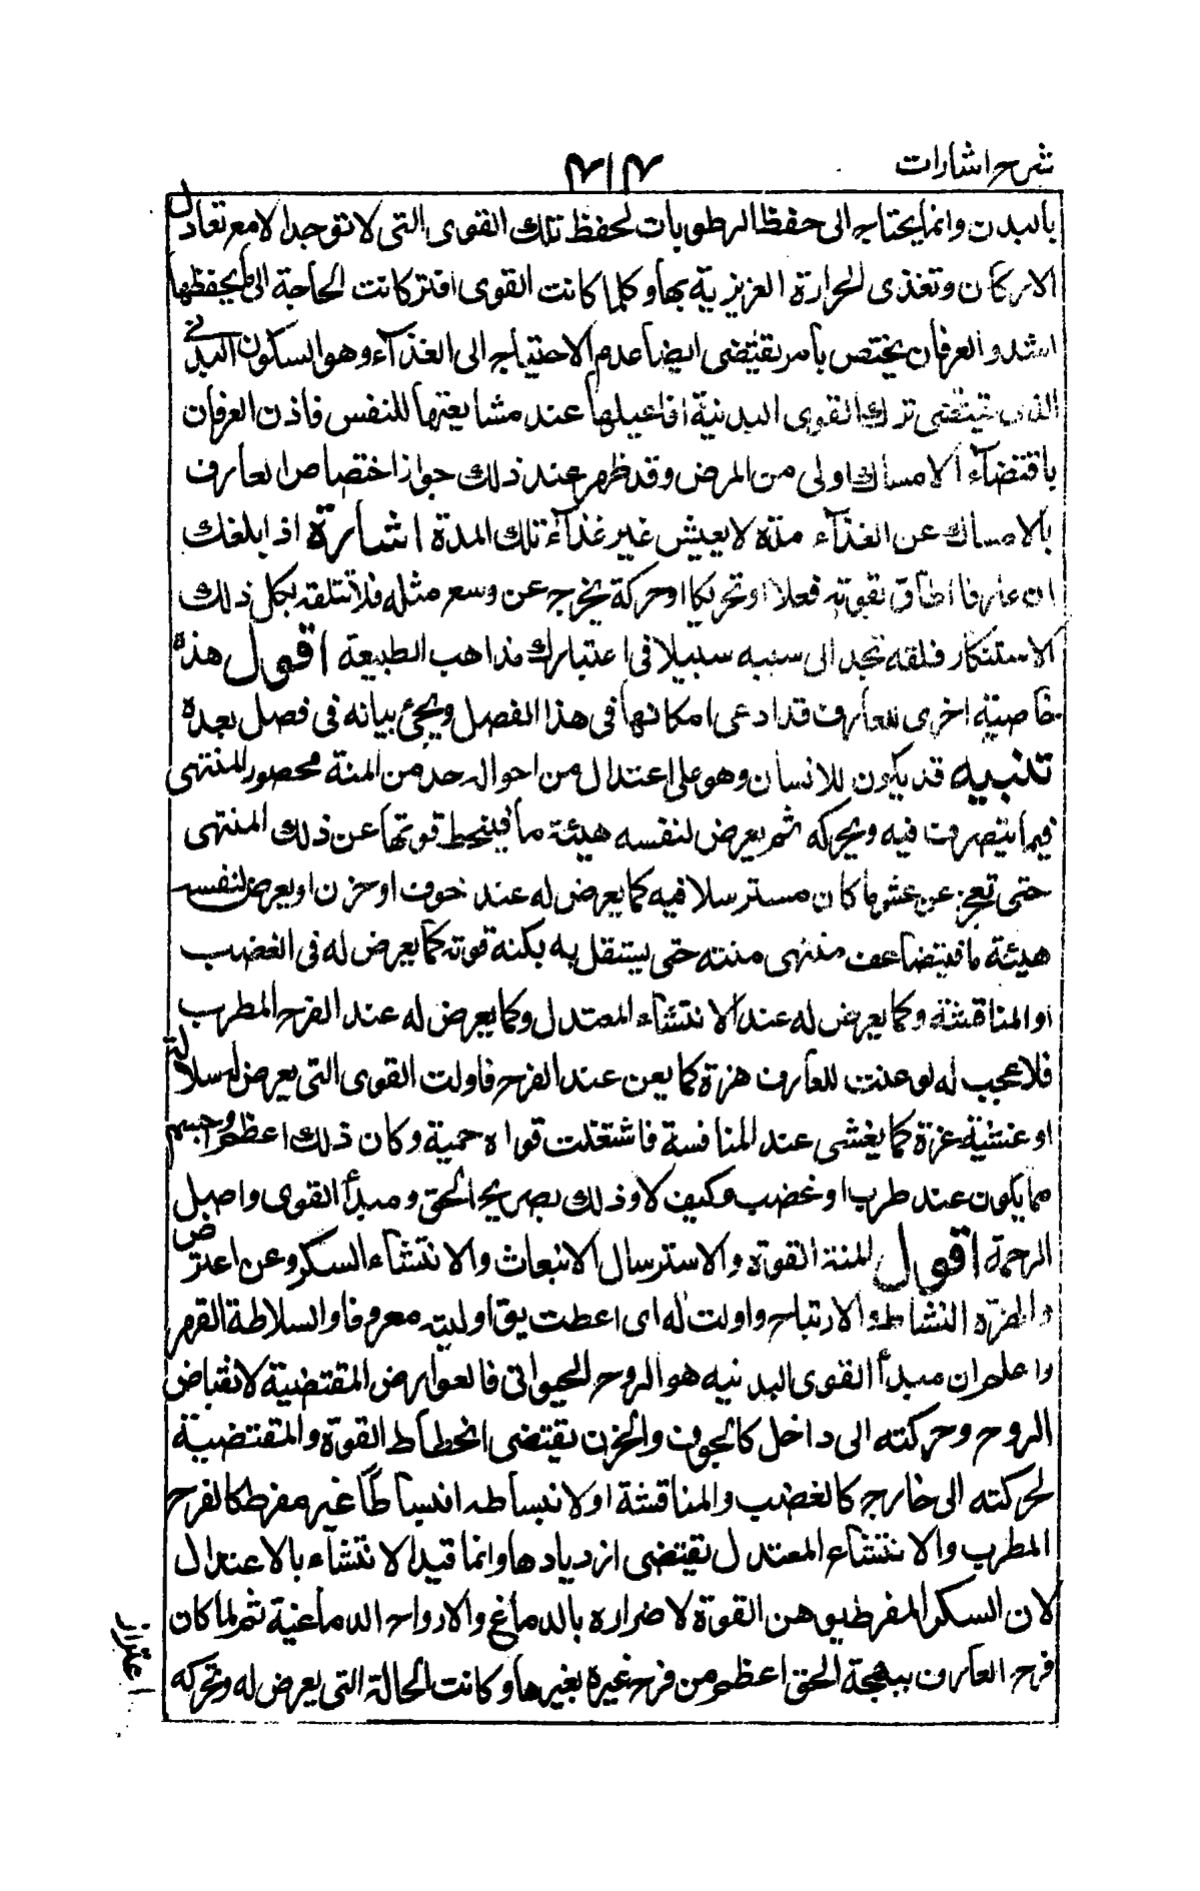 شرح اشارات
بالبدن وانما يحتاج الى حفظ الرطوبات لحفظ تلك القوى التى لا توجد الا مع تعادل
الاركان وتغذى الحرارة الغريزية بها وكلما كانت القوى افتر كانت الحاجة الى ما يحفظها
اشد والعرفان يختص بامر يقتضى ايضا عدم الاحتياج الى الغذآء وهو السكون البدنى
الذى يقتضى ترك القوى البدنية افاعيلها عند مشايعتها للنفس فاذن العرفان
باقتضآء الامساك اولى من المرض وقد ظهر عند ذلك جواز اختصاص العارف
بالامساك عن الغذآء مدة لا يعيش غير غذآء تلك المدة اشارة اذا بلغك
ان عارفا اطاق بقوته فعلا او تحريكا او حركة يخرج عن وسع مثله فلا تتلقه بكل ذلك
الاستنكار فلقه تجد الى سببه سبيلا فى اعتبارك مذاهب الطبيعة اقول هذه
خاصية اخرى للعارف قد ادعى امكانها فى هذا الفصل ويجئ بيانه فى فصل بعده
تنبيه قد يكون للانسان وهو على اعتدال من احواله حد من المنة محصور المنتهى
فيما يتصرف فيه ويحركه ثم يعرض لنفسه هيئة ما فينحط قوتها عن ذلك المنتهى
حتى تعجز عن عشر ما كان مسترسلا فيه كما يعرض له عند خوف او حزن او يعرض لنفسه
هيئة ما فيتضاعف منتهى منته حتى يستقل به بكنه قوته كما يعرض له فى الغضب
او المناقشة وكما يعرض له عند الانتشاء المعتدل وكما يعرض له عند الفرح المطرب
فلا عجب له لو عنت للعارف هزة كما يعن عند الفرح فاولت القوى التى يعرض له سلاطة
او غشية عزة كما يغشى عند المنافسة فاشتعلت قواه حمية وكان ذلك اعظم واجسم
مما يكون عند طرب او غضب وكيف لا وذلك بصريح الحق ومبدأ القوى واصل
الرحمة اقول المنة القوة والاسترسال الانبعاث والانتشاء السكر وعن اعترض
والهزة النشاط والارتياح واولت له اى اعطت يق اوليته معروفا والسلاطة القهر
واعلم ان مبدأ القوى البدنيه هو الروح الحيوانى فالعوارض المقتضية لانقباض
الروح وحركته الى داخل كالخوف والحزن يقتضى انحطاط القوة والمقتضية
لحركته الى خارج كالغضب والمناقشة او لانبساطه انبساطاً غير مفرط كالفرح
المطرب والانتشاء المعتدل يقتضى ازديادها وانما قيد الانتشآء بالاعتدال
لان السكر المفرط يوهن القوة لاضراره بالدماغ والارواح الدماغية ثم لما كان
فرح العارف ببهجة الحق اعظم من فرح غيره بغيرها وكانت الحالة التى يعرض له وتحركه
اعتزاز